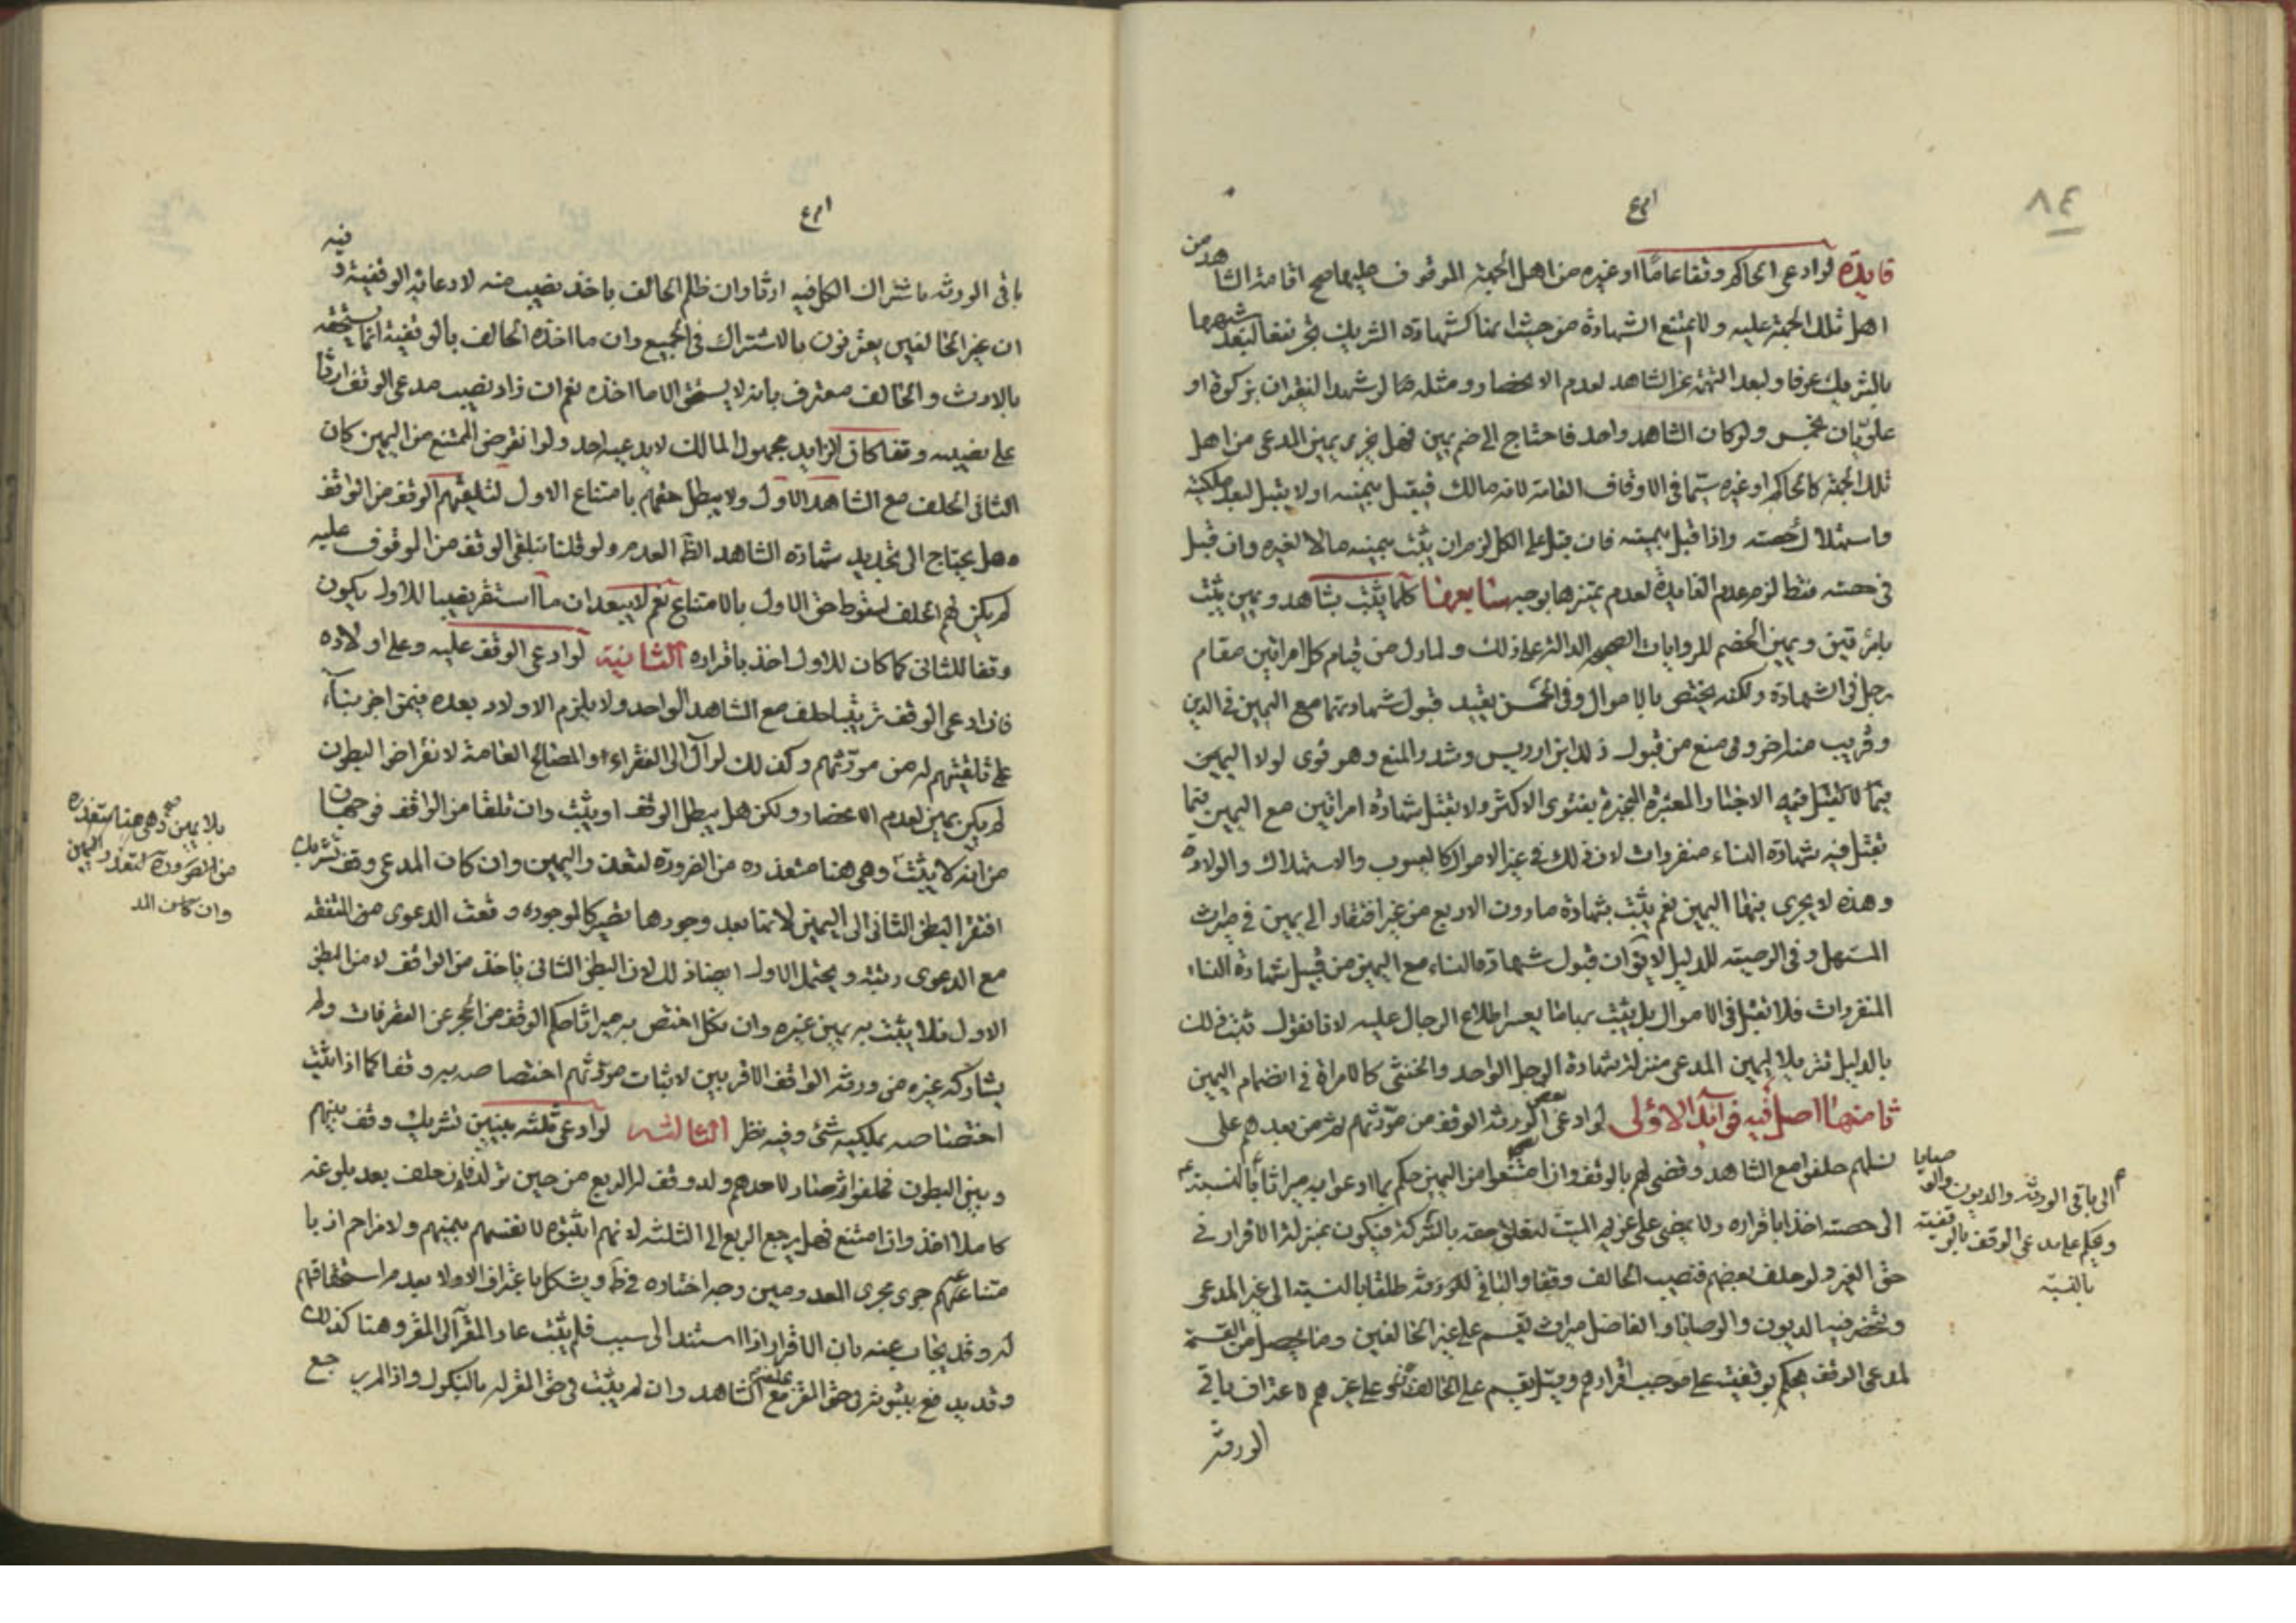 ٨٤
فايدة لو ادعى الحاكم وقفا عاما او غيره من اهل الجهة الموقوف عليها صح اقامة الشاهد من
اهل تلك الجهة عليه ولا تمتنع الشهادة من حيث انها كشهادة الشريك بجر نفعا لبعد شبهها
بالشريك عرفا ولبعد التهمة عن الشاهد لعدم الانحصار ومثله ما لو شهد الفقيران بزكوة او
علويان بخمس ولو كان الشاهد واحد فاحتاج الى ضم يمين فهل يجزى يمين المدعى من اهل
تلك الجهة كالحاكم او غيره سيما في الاوقاف العامة لانه مالك فيقبل يمينه او لا يقبل لبعد ملكيته
واستهلاك حصته واذا قبل يمينه فان قبل على الكل لزم ان يثبت بيمينه مالا لغيره وان قبل
في حصته فقط لزم عدم الفايدة لعدم تميزها بوجه سابعها كلما يثبت بشاهد ويمين يثبت
بامرأتين ويمين الخصم للروايات الدالة على ذلك ولما دل من قيام كل امرأتين مقام
رجل في الشهادة ولكنه يختص بالاموال وفي الحسن تقييد قبول شهادتهما مع اليمين في الدين
وقريب منه اخر وفي منع من قبول ذلك ابن ادريس وشدد المنع وهو قوى لولا اليمين
فيما لا تقبل فيه الاخبار المعتبرة المنجبرة بفتوى الاكثر ولا تقبل شهادة امرأتين مع اليمين فيما
تقبل فيه شهادة النساء منفردات لان ذلك في غير الاموال كالعيوب والاستهلال والولادة
وهذه لا يجرى فيها اليمين نعم يثبت بشهادة ما دون الاربع من غير افتقار الى يمين في ميراث
المستهل وفي الوصية للدليل لا يق ان قبول شهادة النساء مع اليمين من قبيل شهادة النساء
المنفردات فلا تقبل في الاموال بل يثبت بها ما يعسر اطلاع الرجال عليه لانا نقول ثبت ذلك
بالدليل تنزيلا ليمين المدعى منزلة شهادة الرجل الواحد والخنثى كالامرأة في انضمام اليمين
ثامنها اصل فيه فوائد الاولى لو ادعى بعض الورثة الوقف من مورثهم لهم ثم من بعدهم على
نسلهم حلفوا مع الشاهد وقضى لهم بالوقف وان امتنعوا من اليمين حكم بما ادعوا به ميراثا بالنسبة
الى باقى الورثة والديون والوصايا
ويحكم على مدعى الوقف بالوقفية
بالنسبة
الى حصته اخذا باقراره ولا يمضى على غريم الميت لتعلق حقه بالتركة فيكون بمنزلة الاقرار في
حق الغير ولو حلف بعضهم فنصيب الحالف وقفا والباقي للورثة طلقا بالنسبة الى غير المدعى
وتخرج فيه الديون والوصايا والفاضل ميراث يقسم على غير الحالفين وما يحصل من القسمة
لمدعى الوقف يحكم بوقفيته على موجب اقرارهم وقيل يقسم على الحالف وعلى غيرهم لاعتراف باقى
الورثة
باقى الورثة باشتراك الكل فيه ارثا وان ظلم الحالف باخذ نصيب منه لادعائه الوقفية وفيه
ان غير الحالفين يعترفون بالاشتراك في الجميع وان ما اخذه الحالف بالوقفية انما يستحقه
بالارث والحالف معترف بانه لا يستحق الا ما اخذه نعم ان زاد نصيب مدعى الوقف ارثا
على نصيبه وقفا كان الزايد مجهول المالك لا يدعيه احد ولو انقرض الممتنع من اليمين كان
الثانى الحلف مع الشاهد الاول ولا يبطل حقهم بامتناع الاول لتلقيهم الوقف من الواقف
وهل يحتاج الى تجديد شهادة الشاهد الظ العدم ولو قلنا بتلقى الوقف من الموقوف عليه
لم يكن لهم الحلف لسقوط حق الاول بالامتناع نعم لا يبعد ان ما استقر نصيبا للاول يكون
وقفا للثانى كما كان للاول اخذ باقراره الثانية لو ادعى الوقف عليه وعلى اولاده
فان ادعى الوقف ترتيبا حلف مع الشاهد الواحد ولا يلزم الاولاد بعده يمين اخر بناء
على تلقيهم له من مورثهم وكذلك لو آل الى الفقراء او المصالح العامة لانقراض البطون
لم يكن يمين لعدم الانحصار ولكن هل يبطل الوقف او يثبت وان تلقا من الواقف فوجهان
من انه لا يثبت بلا يمين وهى هنا متعذره من الضرورة لتعذر اليمين وان كان المدعى وقف تشريك
بلا يمين وهى هنا متعذره صح
من الضرورة لتعذر اليمين
وان كان المد
افتقر البطن الثانى الى اليمين لانها بعد وجودها تصير كالموجودة وقعت الدعوى من المتفقه
مع الدعوى رتبة ويحتمل الاول ايضا ذلك لان البطن الثانى ياخذ من الواقف لا من البطن
الاول فلا يثبت به يمين غيره وان بكل اختص به ميراثا حكم الوقف من الحجر عن التصرفات ولم
يشاركه غيره من ورثة الواقف الاقربين لاثبات مورثهم اختصاصه به وقفا كما اذا اثبت
اختصاصه بملكيه شئ وفيه نظر الثالثة لو ادعى ثلثه بنين تشريك وقف بينهم
وبين البطون فحلفوا ثم صار لاحدهم ولد وقف له الربع من حين تولد فان حلف بعد بلوغه
كاملا اخذ وان امتنع فهل يرجع الربع الى الثلثة لانهم اثبتوه لانفسهم بيمينهم ولا مزاحم اذ با
متناعه جرى مجرى المعدومين وجه اختاره في ط ويشكل باعتراف الاولاد بعدم استحقاقهم
له وقد يجاب عنه بان الاقرار اذا استند الى سبب فلم يثبت عاد المقر الى المقر وهنا كذلك
وقد يدفع بثبوته في حق المقر مع الشاهد وان لم يثبت في حق المقر له بالنكول واذا لم يرجع